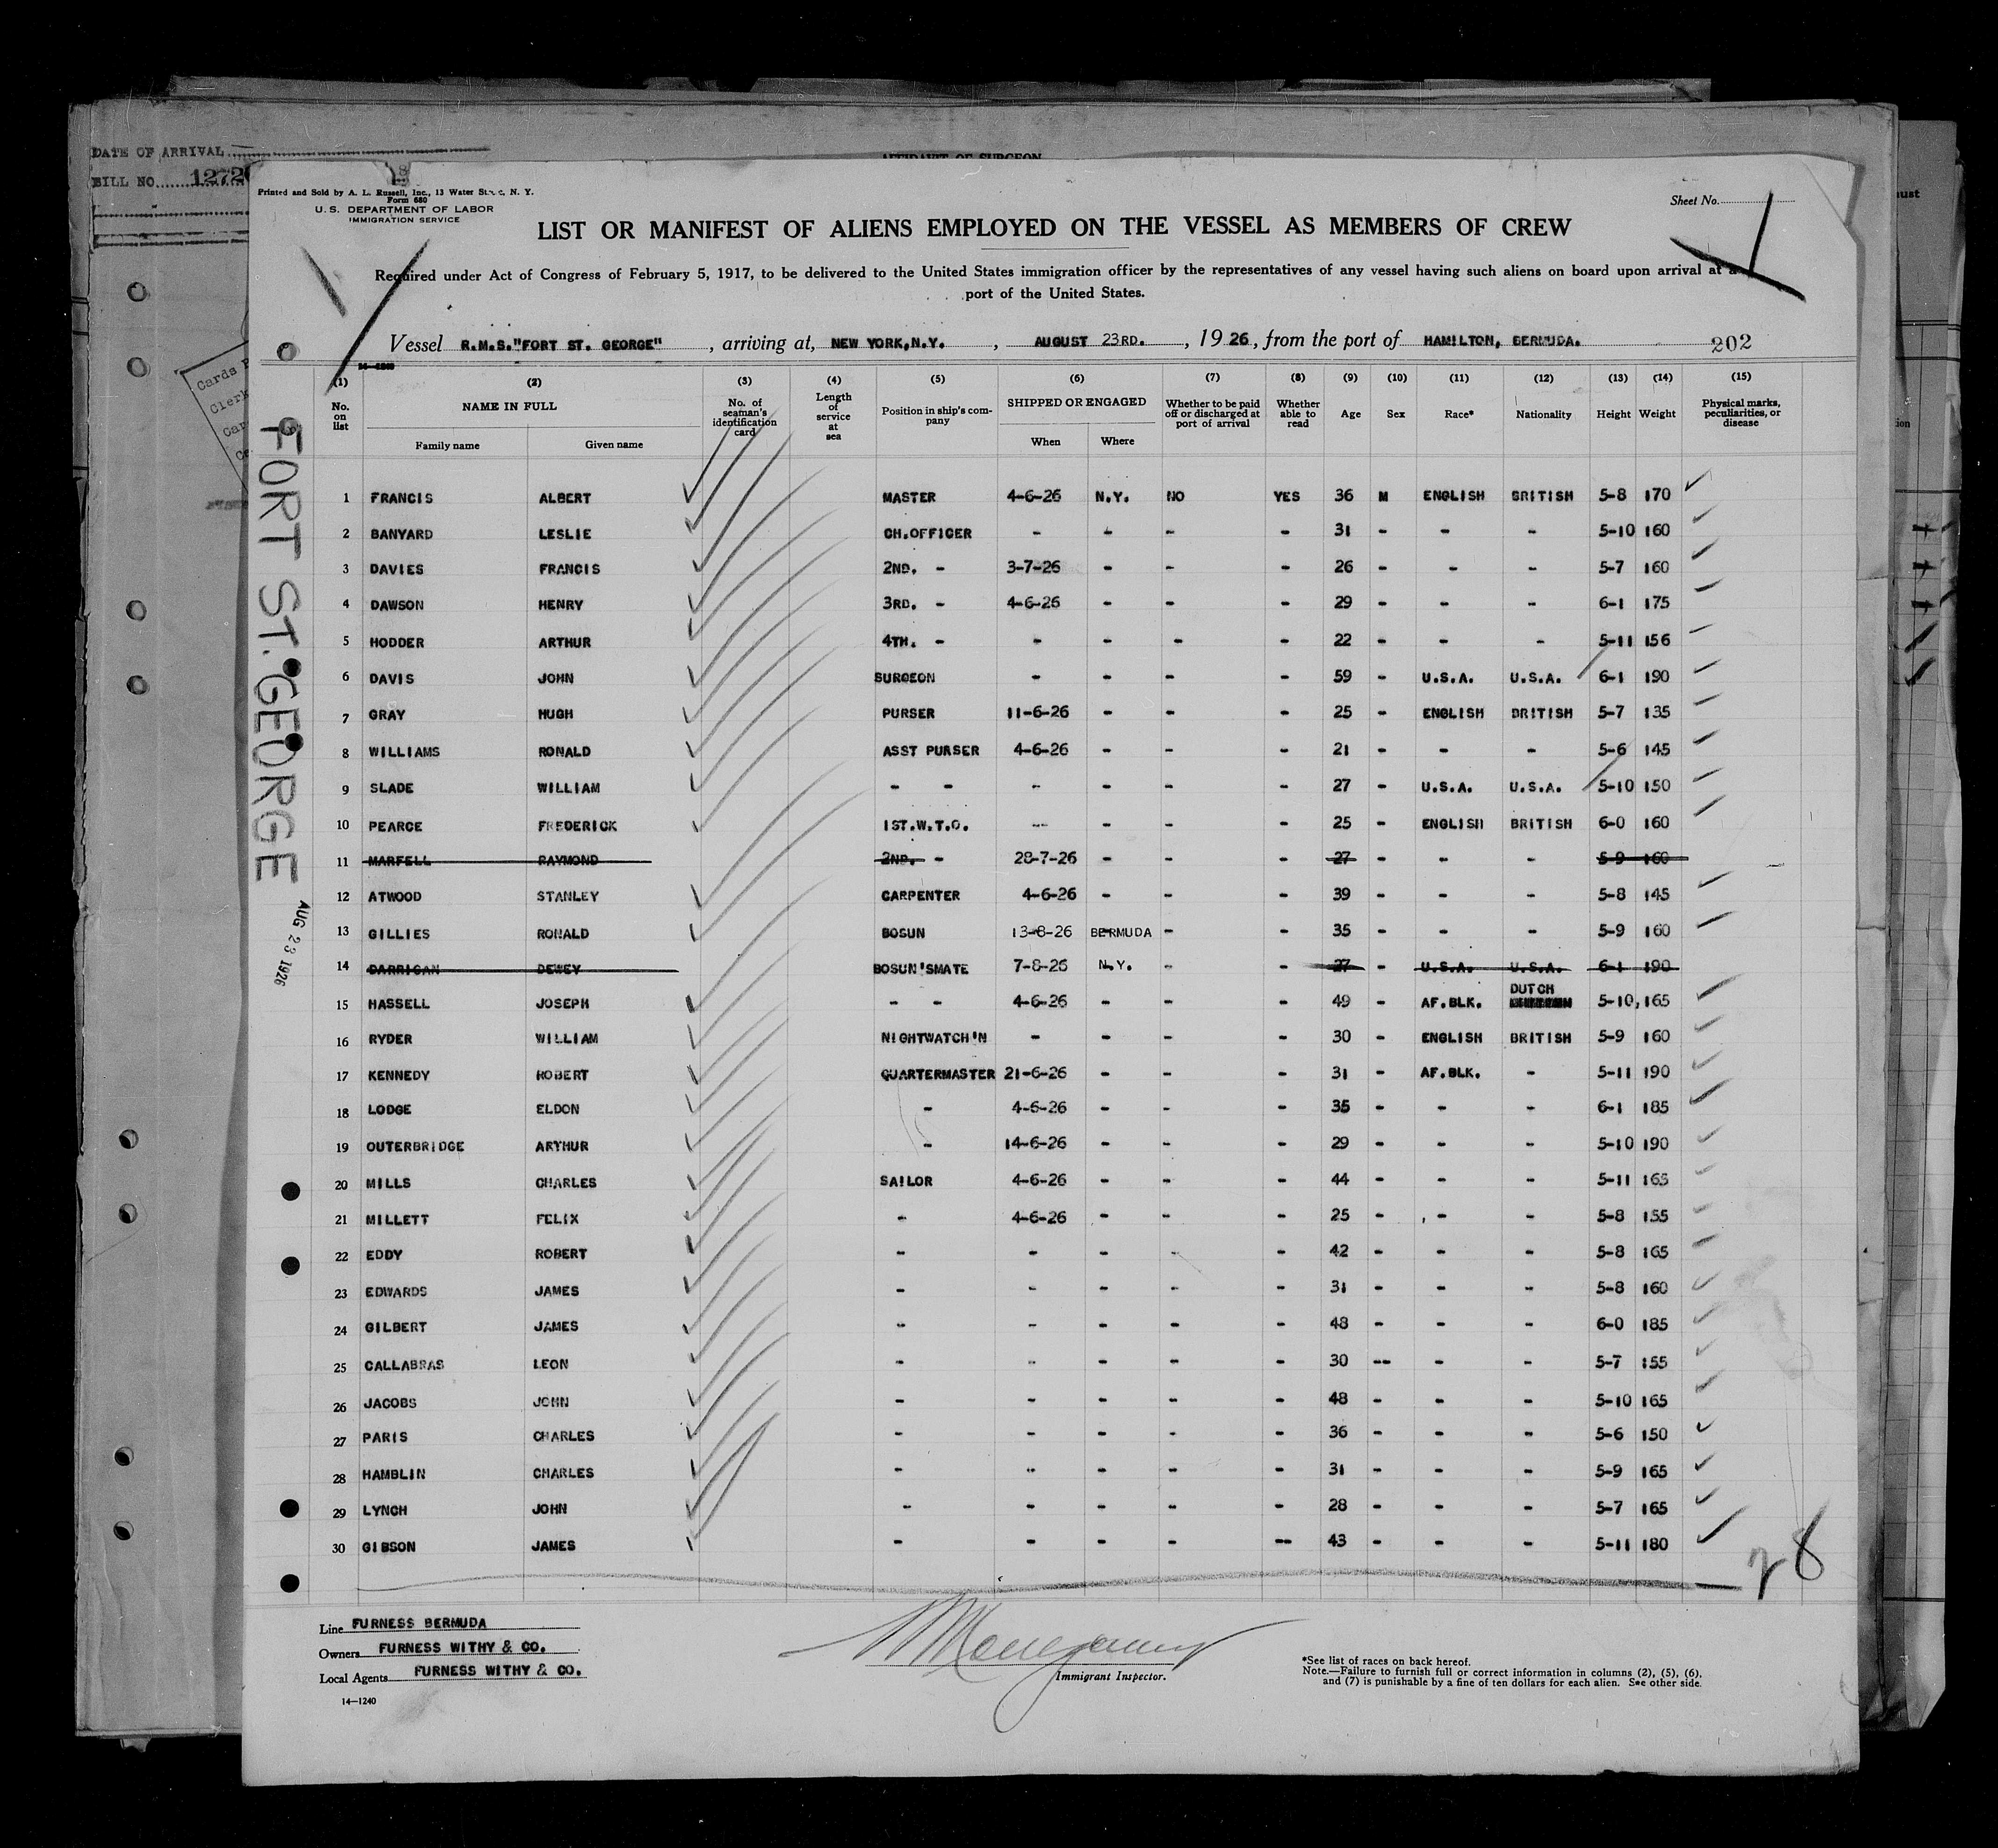 DATE OF ARRIVAL
BILL NO. 1272
AFFIDAVIT OF SURGEON
Cards
Clerk
Printed and Sold by A. L. Russell, Inc., 13 Water St., N. Y.
Form 680
U. S. DEPARTMENT OF LABOR
IMMIGRATION SERVICE
Sheet No. 1
LIST OR MANIFEST OF ALIENS EMPLOYED ON THE VESSEL AS MEMBERS OF CREW
Required under Act of Congress of February 5, 1917, to be delivered to the United States immigration officer by the representatives of any vessel having such aliens on board upon arrival at a
port of the United States.
Vessel R.M.S."FORT ST. GEORGE", arriving at, NEW YORK,N.Y., AUGUST 23RD., 1926, from the port of HAMILTON, BERMUDA. 202
14-1240
(1) (2) (3) (4) (5) (6) (7) (8) (9) (10) (11) (12) (13) (14) (15)
No. on list NAME IN FULL Family name Given name No. of seaman's identification card Length of service at sea Position in ship's company SHIPPED OR ENGAGED When Where Whether to be paid off or discharged at port of arrival Whether able to read Age Sex Race* Nationality Height Weight Physical marks, peculiarities, or disease
FORT ST. GEORGE
AUG 23 1926
1 FRANCIS ALBERT MASTER 4-6-26 N.Y. NO YES 36 M ENGLISH BRITISH 5-8 170
2 BANYARD LESLIE CH.OFFICER - - - - 31 - - - 5-10 160
3 DAVIES FRANCIS 2ND. - 3-7-26 - - - 26 - - - 5-7 160
4 DAWSON HENRY 3RD. - 4-6-26 - - - 29 - - - 6-1 175
5 HODDER ARTHUR 4TH. - - - - - 22 - - - 5-11 156
6 DAVIS JOHN SURGEON - - - - 59 - U.S.A. U.S.A. 6-1 190
7 GRAY HUGH PURSER 11-6-26 - - - 25 - ENGLISH BRITISH 5-7 135
8 WILLIAMS RONALD ASST PURSER 4-6-26 - - - 21 - - - 5-6 145
9 SLADE WILLIAM - - - - - - 27 - U.S.A. U.S.A. 5-10 150
10 PEARCE FREDERICK 1ST.W.T.O. -- - - - 25 - ENGLISH BRITISH 6-0 160
11 MARFELL RAYMOND 2ND. - 28-7-26 - - - 27 - - - 5-9 160
12 ATWOOD STANLEY CARPENTER 4-6-26 - - - 39 - - - 5-8 145
13 GILLIES RONALD BOSUN 13-8-26 BERMUDA - - 35 - - - 5-9 160
14 DARRIGAN DEWEY BOSUN'SMATE 7-8-26 N.Y. - - 27 - U.S.A. U.S.A. 6-1 190
15 HASSELL JOSEPH - - 4-6-26 - - - 49 - AF.BLK. DUTCH 5-10, 165
16 RYDER WILLIAM NIGHTWATCH'N - - - - 30 - ENGLISH BRITISH 5-9 160
17 KENNEDY ROBERT QUARTERMASTER 21-6-26 - - - 31 - AF.BLK. - 5-11 190
18 LODGE ELDON - 4-6-26 - - - 35 - - - 6-1 185
19 OUTERBRIDGE ARTHUR - 14-6-26 - - - 29 - - - 5-10 190
20 MILLS CHARLES SAILOR 4-6-26 - - - 44 - - - 5-11 165
21 MILLETT FELIX - 4-6-26 - - - 25 - - - 5-8 155
22 EDDY ROBERT - - - - - 42 - - - 5-8 165
23 EDWARDS JAMES - - - - - 31 - - - 5-8 160
24 GILBERT JAMES - - - - - 48 - - - 6-0 185
25 CALLABRAS LEON - - - - - 30 -- - - 5-7 155
26 JACOBS JOHN - - - - - 48 - - - 5-10 165
27 PARIS CHARLES - - - - - 36 - - - 5-6 150
28 HAMBLIN CHARLES - - - - - 31 - - - 5-9 165
29 LYNCH JOHN - - - - - 28 - - - 5-7 165
30 GIBSON JAMES - - - - -- 43 - - - 5-11 180
28
Line FURNESS BERMUDA
Owners FURNESS WITHY & CO.
Local Agents FURNESS WITHY & CO.
14—1240
Immigrant Inspector.
*See list of races on back hereof.
Note.—Failure to furnish full or correct information in columns (2), (5), (6),
and (7) is punishable by a fine of ten dollars for each alien. See other side.